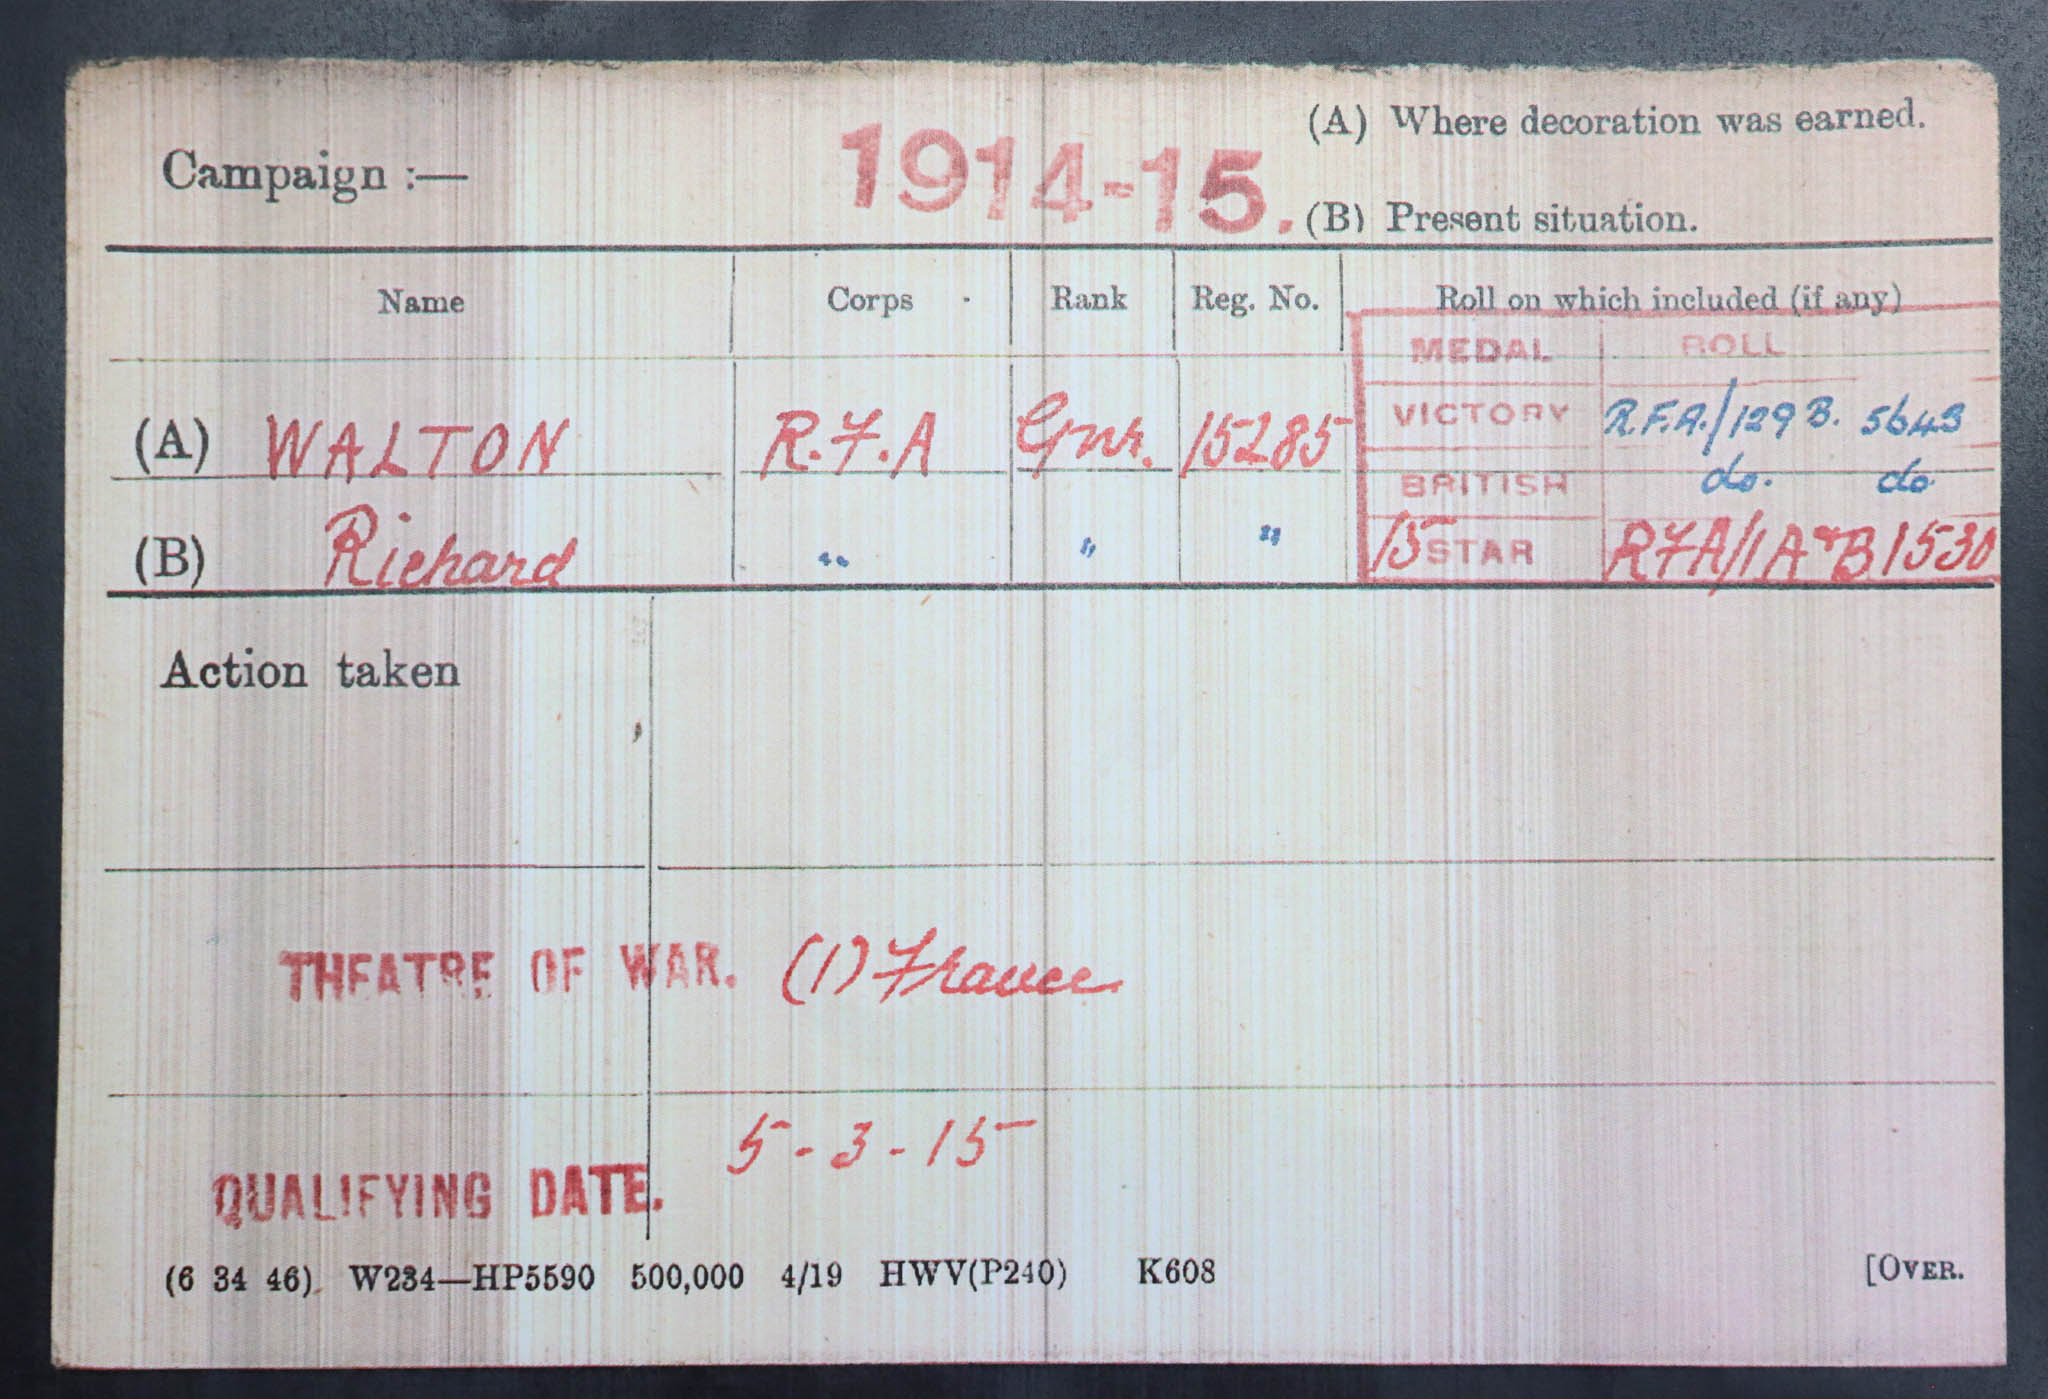 Campaign :— 1914-15. (A) Where decoration was earned.
(B) Present situation.
Name Corps Rank Reg. No. Roll on which included (if any)
MEDAL ROLL
(A) WALTON R.F.A Gnr. 15285 VICTORY R.F.A./129 B. 5643
BRITISH do. do
(B) Richard " " " 15 STAR RFA/1A&B 1530
Action taken
THEATRE OF WAR. (1) France
QUALIFYING DATE. 5-3-15
(6 34 46) W234—HP5590 500,000 4/19 HWV(P240) K608 [OVER.